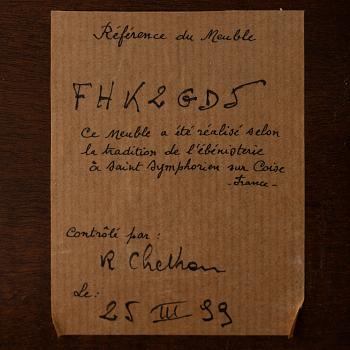 Référence du Meuble
FHK2GD5
Ce Meuble a été réalisé selon
la tradition de l'ébénisterie
à Saint Symphorien sur Coise
-France-
Contrôlé par :
R Chelhon
Le :
25 III 99